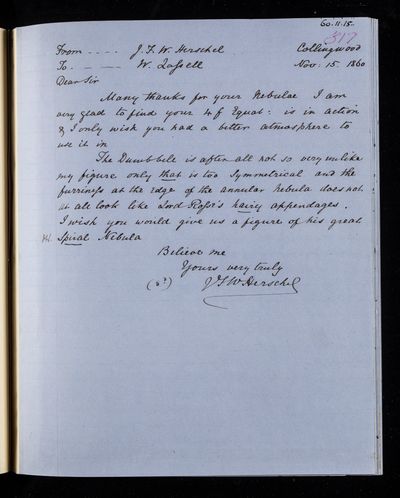 60.11.15.
317
From - - - - J. F. W. Herschel Collingwood
To - - - - W. Lassell Nov: 15. 1860
Dear Sir
Many thanks for your Nebulae I am
very glad to find your 4f Equat: is in action
& I only wish you had a better atmosphere to
use it in
The Dumb-bell is after all not so very unlike
my figure only that is too Symmetrical and the
furriness at the edge of the annular nebula does not
at all look like Lord Rosse's hairy appendages.
I wish you would give us a figure of his great
Spiral Nebula
Believe me
Yours very truly
J F W Herschel